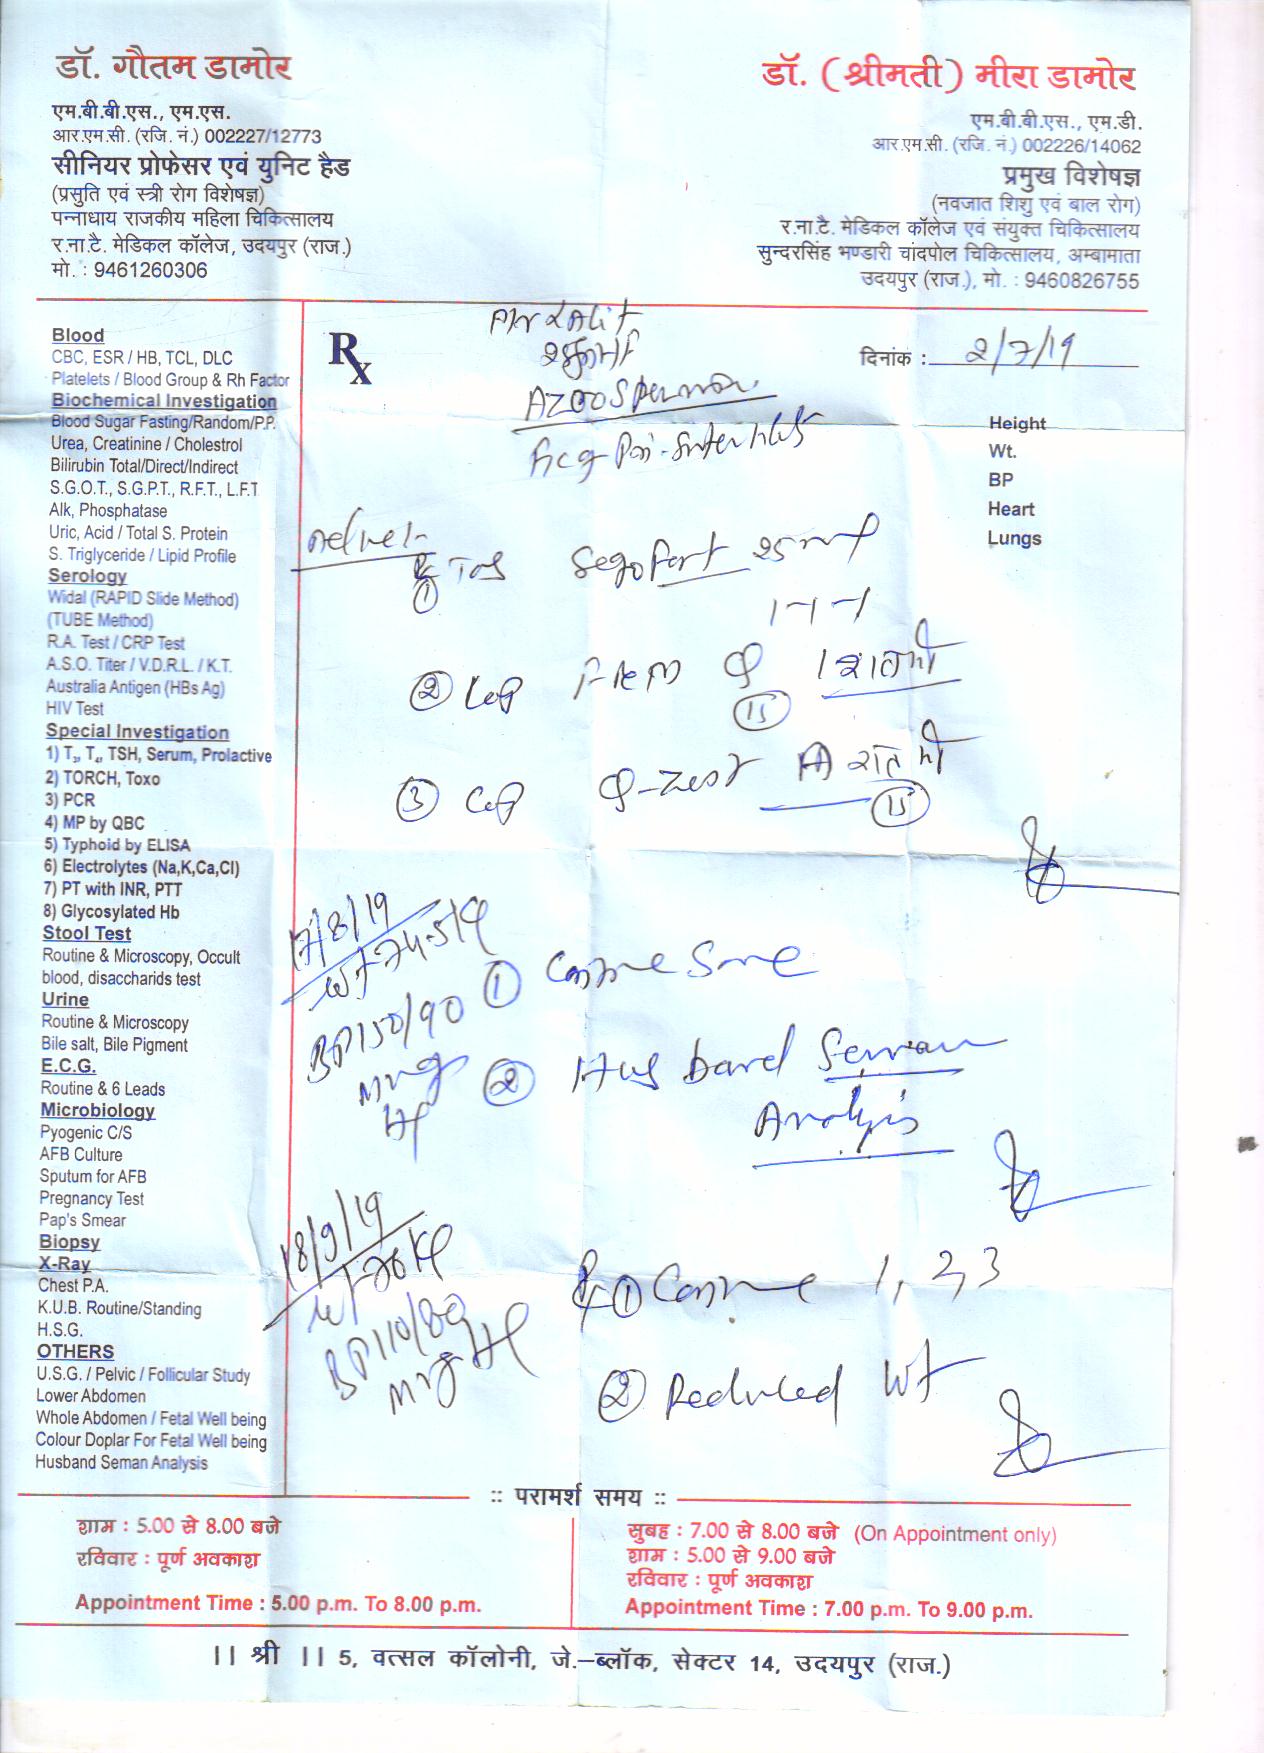 डॉ. गौतम डामोर
एम.बी.बी.एस., एम.एस.
आर.एम.सी. (रजि. नं.) 002227/12773
सीनियर प्रोफेसर एवं युनिट हैड
(प्रसुति एवं स्त्री रोग विशेषज्ञ)
पन्नाधाय राजकीय महिला चिकित्सालय
र.ना.टै. मेडिकल कॉलेज, उदयपुर (राज.)
मो. : 9461260306
डॉ. (श्रीमती) मीरा डामोर
एम.बी.बी.एस., एम.डी.
आर.एम.सी. (रजि. नं.) 002226/14062
प्रमुख विशेषज्ञ
(नवजात शिशु एवं बाल रोग)
र.ना.टै. मेडिकल कॉलेज एवं संयुक्त चिकित्सालय
सुन्दरसिंह भण्डारी चांदपोल चिकित्सालय, अम्बामाता
उदयपुर (राज.), मो. : 9460826755
Blood
CBC, ESR / HB, TCL, DLC
Platelets / Blood Group & Rh Factor
Biochemical Investigation
Blood Sugar Fasting/Random/P.P.
Urea, Creatinine / Cholestrol
Bilirubin Total/Direct/Indirect
S.G.O.T., S.G.P.T., R.F.T., L.F.T
Alk, Phosphatase
Uric, Acid / Total S. Protein
S. Triglyceride / Lipid Profile
Serology
Widal (RAPID Slide Method)
(TUBE Method)
R.A. Test / CRP Test
A.S.O. Titer / V.D.R.L. / K.T.
Australia Antigen (HBs Ag)
HIV Test
Special Investigation
1) T₃, T₄, TSH, Serum, Prolactive
2) TORCH, Toxo
3) PCR
4) MP by QBC
5) Typhoid by ELISA
6) Electrolytes (Na,K,Ca,Cl)
7) PT with INR, PTT
8) Glycosylated Hb
Stool Test
Routine & Microscopy, Occult
blood, disaccharids test
Urine
Routine & Microscopy
Bile salt, Bile Pigment
E.C.G.
Routine & 6 Leads
Microbiology
Pyogenic C/S
AFB Culture
Sputum for AFB
Pregnancy Test
Pap's Smear
Biopsy
X-Ray
Chest P.A.
K.U.B. Routine/Standing
H.S.G.
OTHERS
U.S.G. / Pelvic / Follicular Study
Lower Abdomen
Whole Abdomen / Fetal Well being
Colour Doplar For Fetal Well being
Husband Seman Analysis
Rx
दिनांक : 2/7/19
Height
Wt.
BP
Heart
Lungs
Azoospermia
① Tab 25 mg
1-1-1
② Cap 1 रात को
⑮
③ Cap Q-Zest रात को
⑮
17/8/19
Wt 74.5 kg
BP 150/90
mmHg
① Continue Same
② Husband Seman
Analysis
18/9/19
Wt 70 kg
BP 110/80
mmHg
Rx ① Continue 1, 2, 3
② Reduced Wt
:: परामर्श समय ::
शाम : 5.00 से 8.00 बजे
रविवार : पूर्ण अवकाश
Appointment Time : 5.00 p.m. To 8.00 p.m.
सुबह : 7.00 से 8.00 बजे (On Appointment only)
शाम : 5.00 से 9.00 बजे
रविवार : पूर्ण अवकाश
Appointment Time : 7.00 p.m. To 9.00 p.m.
|| श्री || 5, वत्सल कॉलोनी, जे.–ब्लॉक, सेक्टर 14, उदयपुर (राज.)